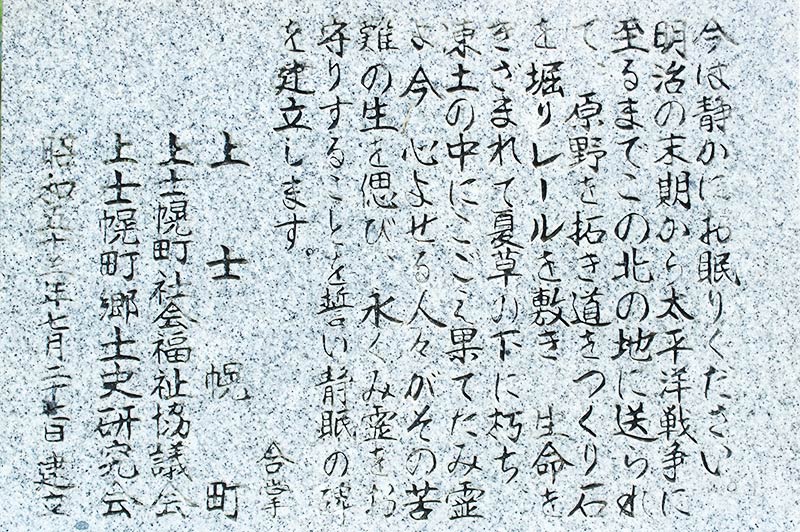 今は静かにお眠りください。
明治の末期から太平洋戦争に
至るまでこの北の地に送られ
て　原野を拓き道をつくり石
を堀りレールを敷き　生命を
きざまれて夏草の下に朽ち
凍土の中にこごえ果てたみ霊
よ今　心よせる人々がその苦
難の生を偲び、永くみ霊をお
守りすることを誓い静眠の碑
を建立します。
合掌
上士幌町
上士幌町社会福祉協議会
上士幌町郷土史研究会
昭和五十三年七月二十七日 建立